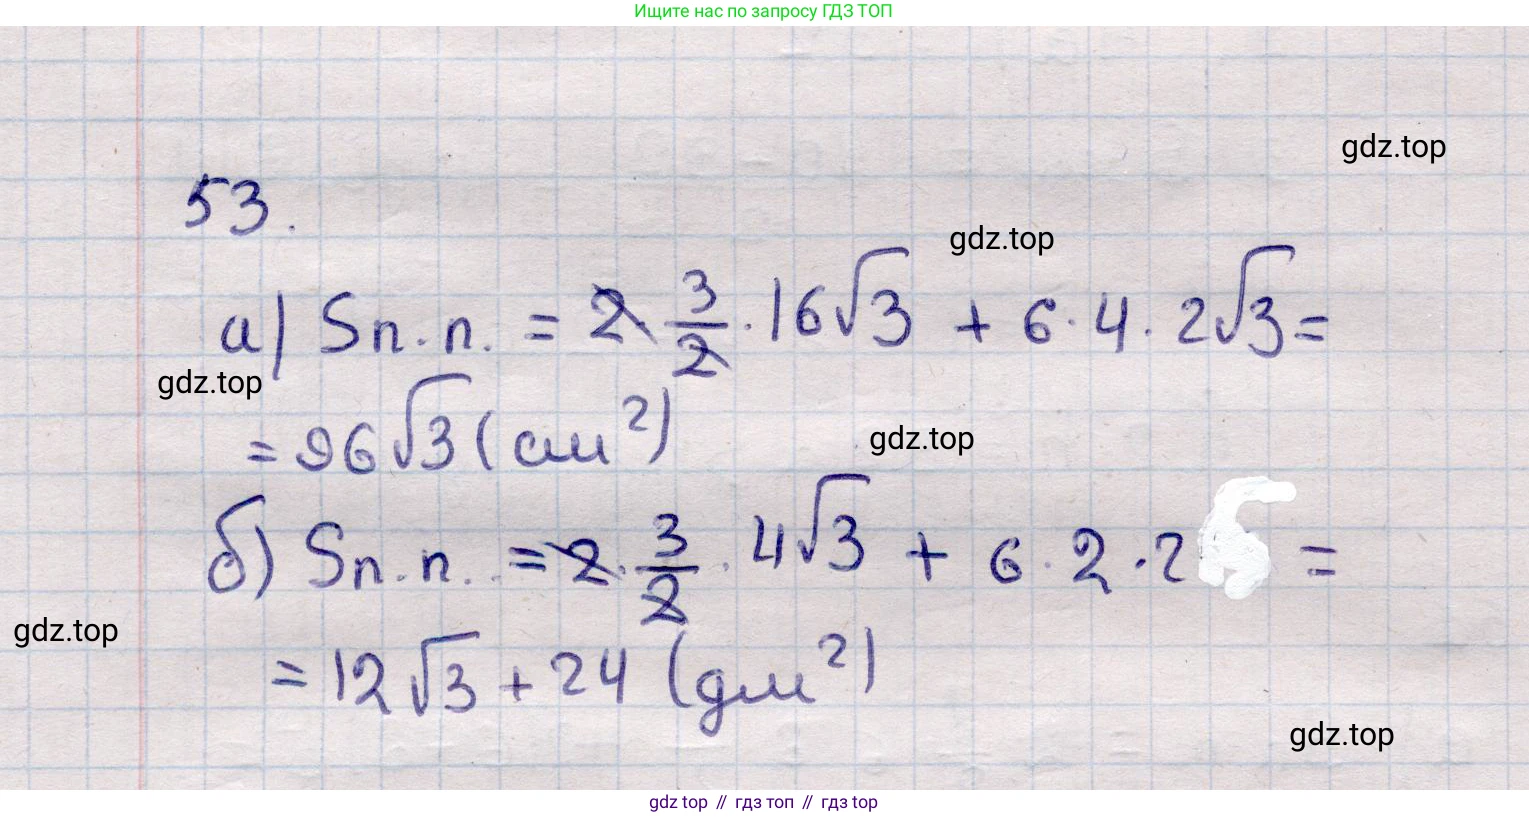 Ищите нас по запросу ГДЗ ТОП
gdz.top
53.
gdz.top
а) Sп.п. = 2 · 3/2 · 16√3 + 6 · 4 · 2√3 =
gdz.top
= 96√3 (см²)
gdz.top
б) Sп.п. = 2 · 3/2 · 4√3 + 6 · 2 · 2 =
gdz.top
= 12√3 + 24 (дм²)
gdz.top
gdz top // гдз топ // гдз top